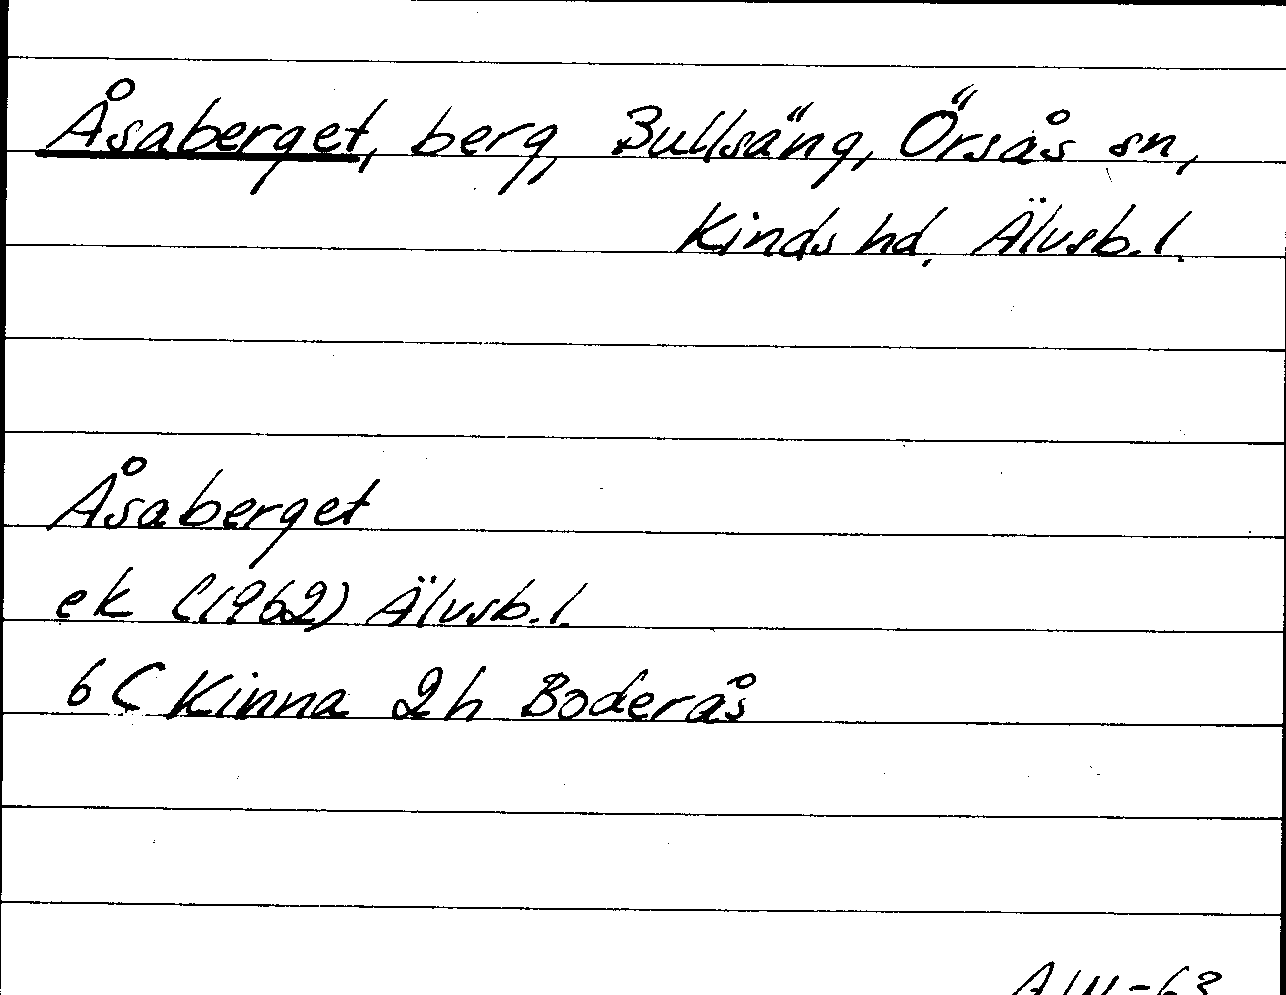 Åsaberget, berg, Bullsäng, Örsås sn,
Kinds hd. Älvsb. l.
Åsaberget
ek (1962) Älvsb. l.
6 C Kinna 2 h Boderås